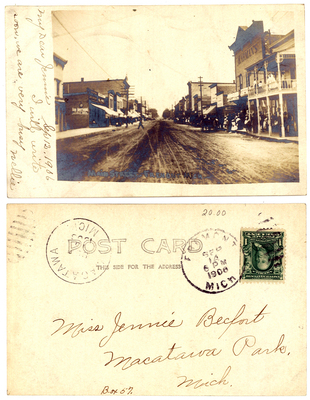 My Dear Jennie
Sep 13, 1906
I will write
now we are very busy
Nellie
20.00
POST CARD
THIS SIDE FOR THE ADDRESS
MACATAWA
MICH
SEP
14
6 PM
1906
MICH
Miss Jennie Becfort
Macatawa Park.
Mich.
Box 57